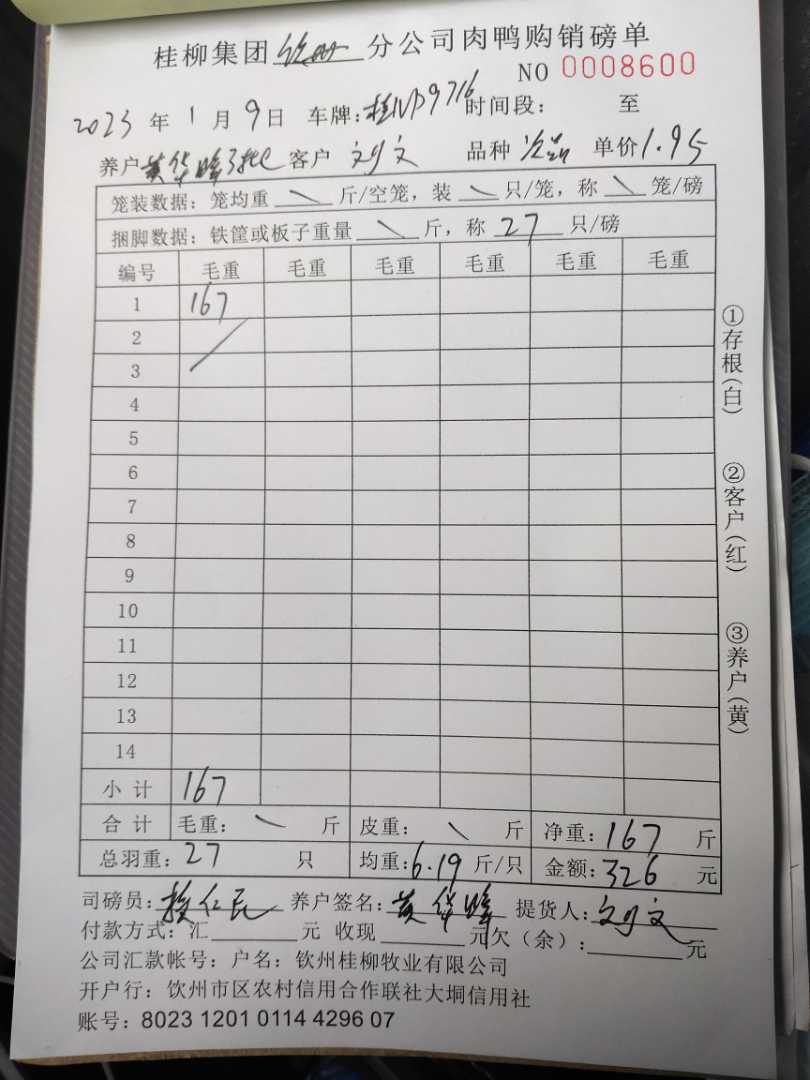 桂柳集团 钦州 分公司肉鸭购销磅单
NO 0008600
2023 年 1 月 9 日 车牌:桂ND9716 时间段: 至
养户 黄华峰 客户 刘文 品种 次品 单价 1.95
笼装数据: 笼均重 \ 斤/空笼, 装 \ 只/笼, 称 \ 笼/磅
捆脚数据: 铁筐或板子重量 \ 斤, 称 27 只/磅
编号 毛重 毛重 毛重 毛重 毛重 毛重
1 167
2
3
4
5
6
7
8
9
10
11
12
13
14
小计 167
合计 毛重: \ 斤 皮重: \ 斤 净重: 167 斤
总羽重: 27 只 均重: 6.19 斤/只 金额: 326 元
司磅员: 养户签名: 黄华峰 提货人: 刘文
付款方式: 汇 元 收现 元欠(余): 元
公司汇款帐号: 户名: 钦州桂柳牧业有限公司
开户行: 钦州市区农村信用合作联社大垌信用社
账号: 8023 1201 0114 4296 07
①存根(白)
②客户(红)
③养户(黄)